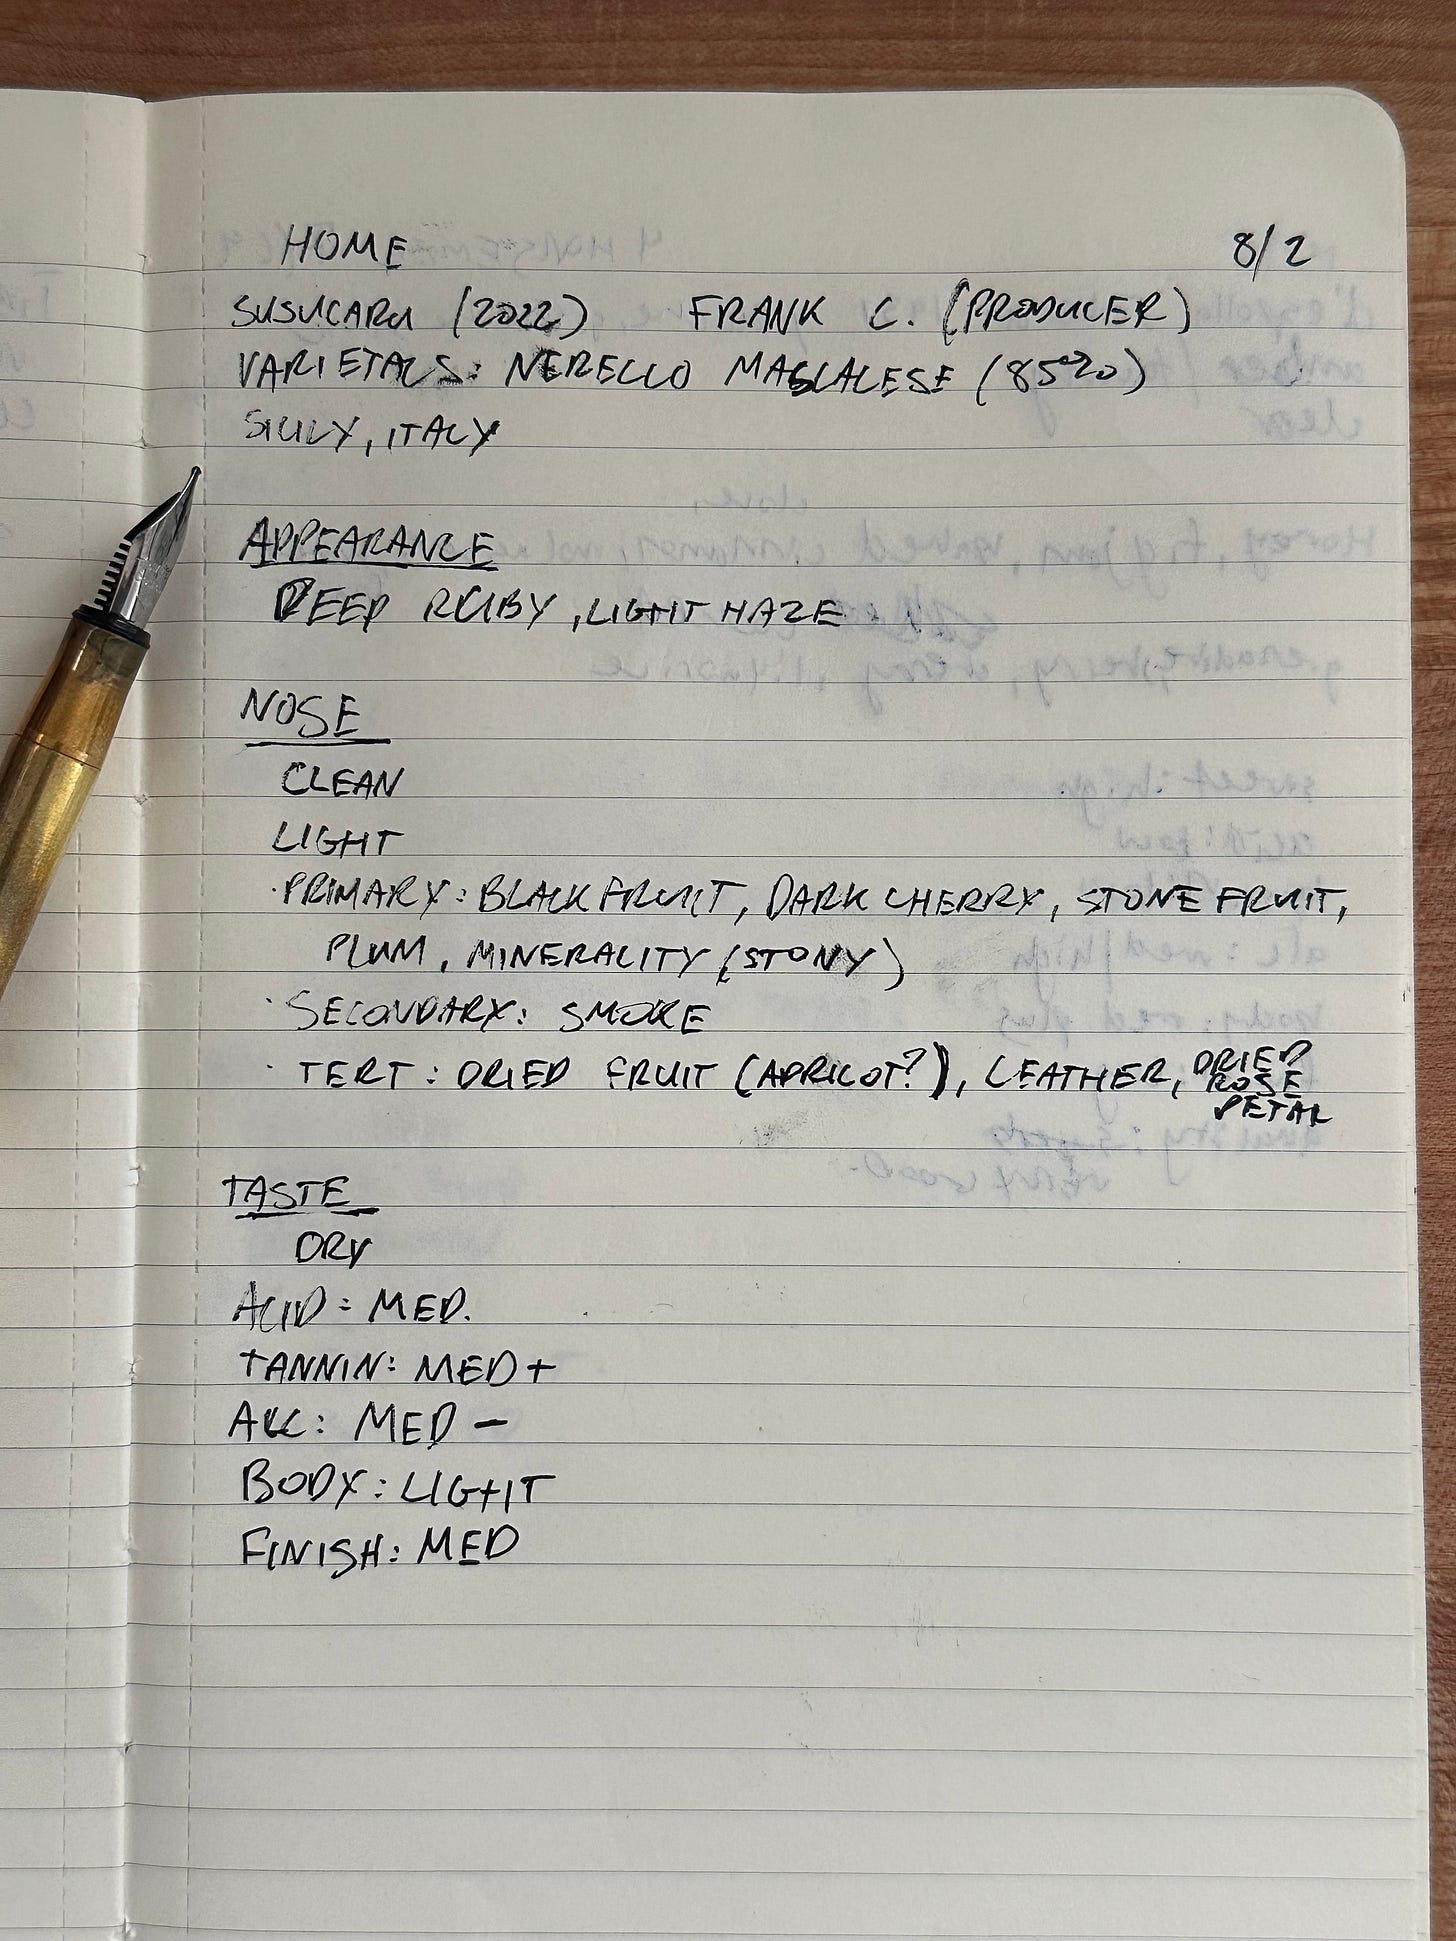 HOME 8/2
SUSUCARU (2022) FRANK C. (PRODUCER)
VARIETALS: NERELLO MASCALESE (85%)
SICILY, ITALY
APPEARANCE
DEEP RUBY, LIGHT HAZE
NOSE
CLEAN
LIGHT
· PRIMARY: BLACK FRUIT, DARK CHERRY, STONE FRUIT,
PLUM, MINERALITY (STONY)
· SECONDARY: SMOKE
· TERT: DRIED FRUIT (APRICOT?), LEATHER, DRIED
ROSE
PETAL
TASTE
DRY
ACID: MED.
TANNIN: MED+
ALC: MED -
BODY: LIGHT
FINISH: MED